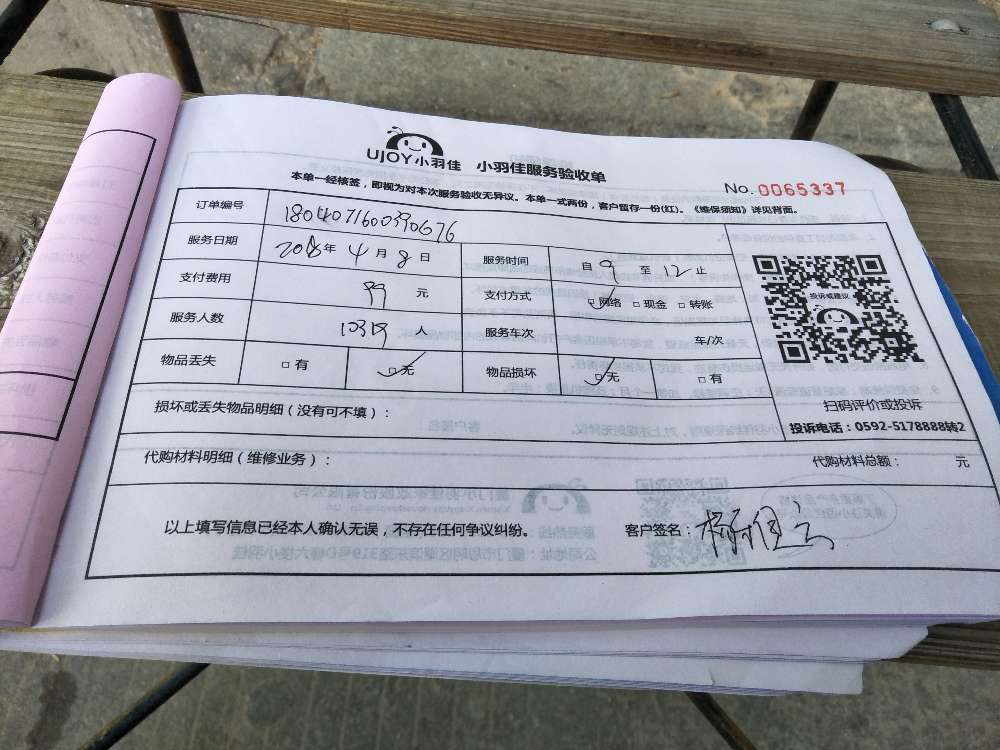 UJOY小羽佳 小羽佳服务验收单
No. 0065337
本单一经核签，即视为对本次服务验收无异议。本单一式两份，客户留存一份(红)。《维保须知》详见背面。
订单编号 180407160039067６
服务日期 2018年 4 月 8 日 服务时间 自 9 至 12 止
支付费用 99 元 支付方式 网络 □ 现金 □ 转账
服务人数 人 服务车次 车/次
物品丢失 □ 有 □ 无 物品损坏 □ 无 □ 有
投诉或建议
扫码评价或投诉
投诉电话：0592-5178888转2
损坏或丢失物品明细（没有可不填）：
代购材料明细（维修业务）： 代购材料总额： 元
以上填写信息已经本人确认无误，不存在任何争议纠纷。 客户签名：